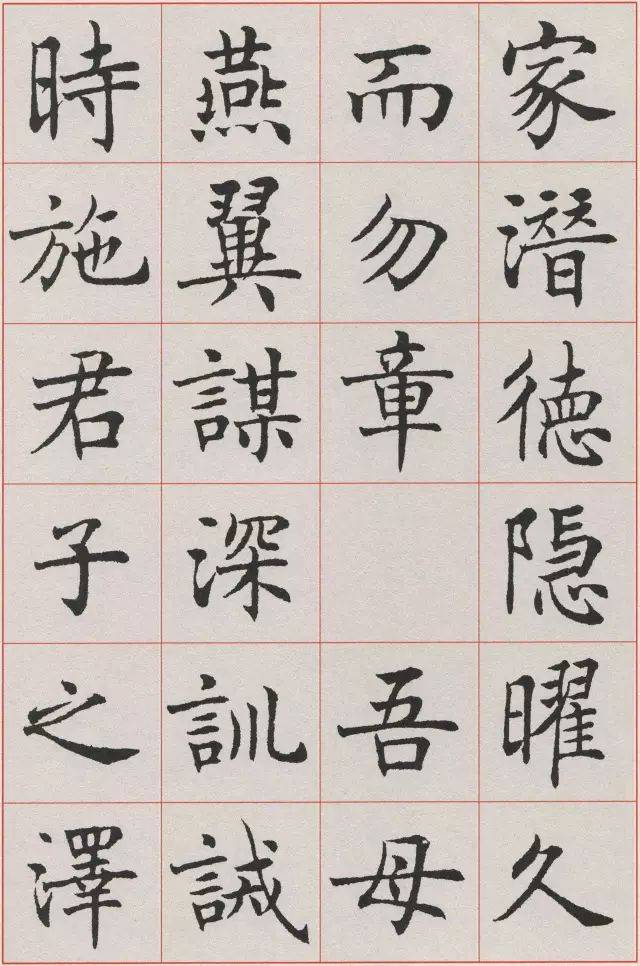 家潛德隱曜久
而勿章 吾母
燕翼謀深訓誡
時施君子之澤